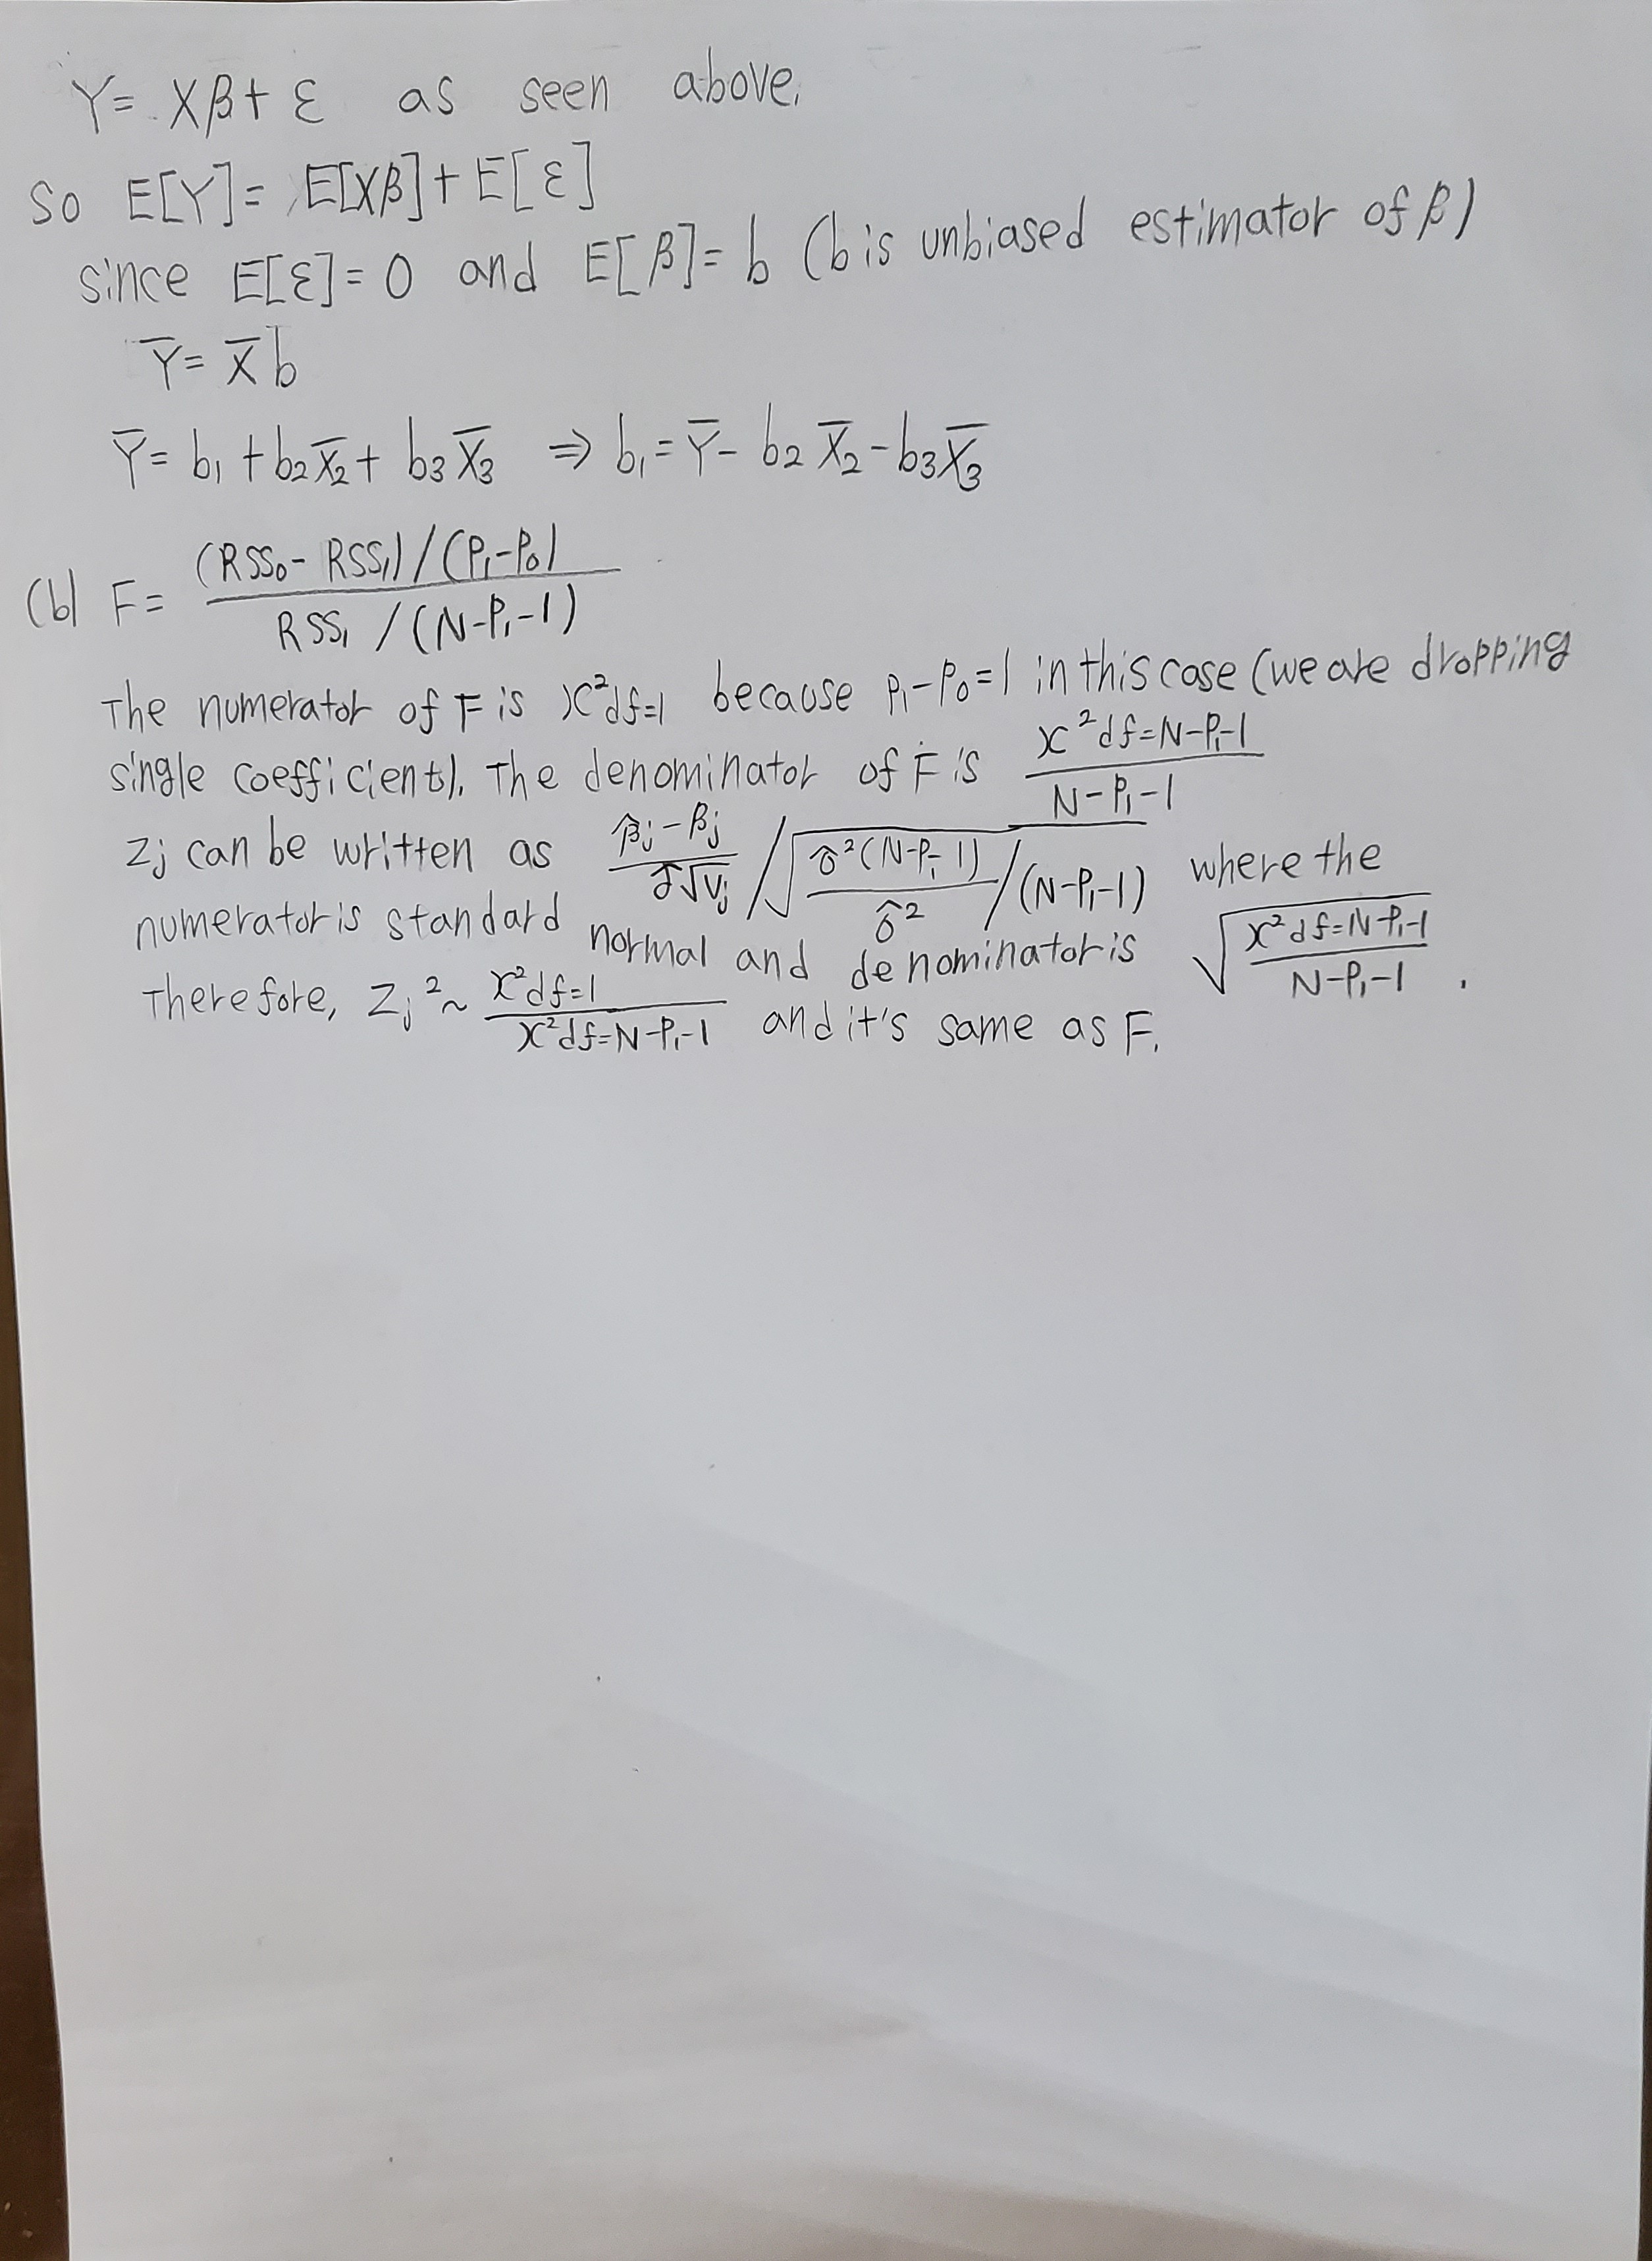 Y = Xβ + ε as seen above.
So E[Y] = E[Xβ] + E[ε]
since E[ε] = 0 and E[β] = b (b is unbiased estimator of β)
Y̅ = X̅ b
Y̅ = b₁ + b₂X̅₂ + b₃X̅₃ ⇒ b₁ = Y̅ - b₂X̅₂ - b₃X̅₃
(b) F = (RSS₀ - RSS₁) / (P₁ - P₀)
RSS₁ / (N - P₁ - 1)
The numerator of F is χ²df=1 because P₁ - P₀ = 1 in this case (we are dropping
single coefficients). The denominator of F is χ²df=N-P₁-1 / N-P₁-1
Zj can be written as β̂j - βj / σ√Vj / √(σ̂²(N-P₁-1) / σ̂² / (N-P₁-1)) where the
numerator is standard normal and denominator is √(χ²df=N-P₁-1 / N-P₁-1).
Therefore, Zj² ~ χ²df=1 / χ²df=N-P₁-1 and it's same as F.